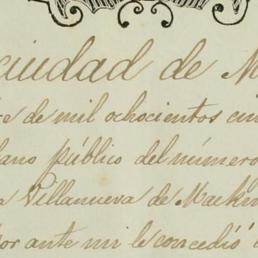 ciudad de M
de mil ochocientos cin
ano público del número
a Villanueva de
or ante mi le concedió